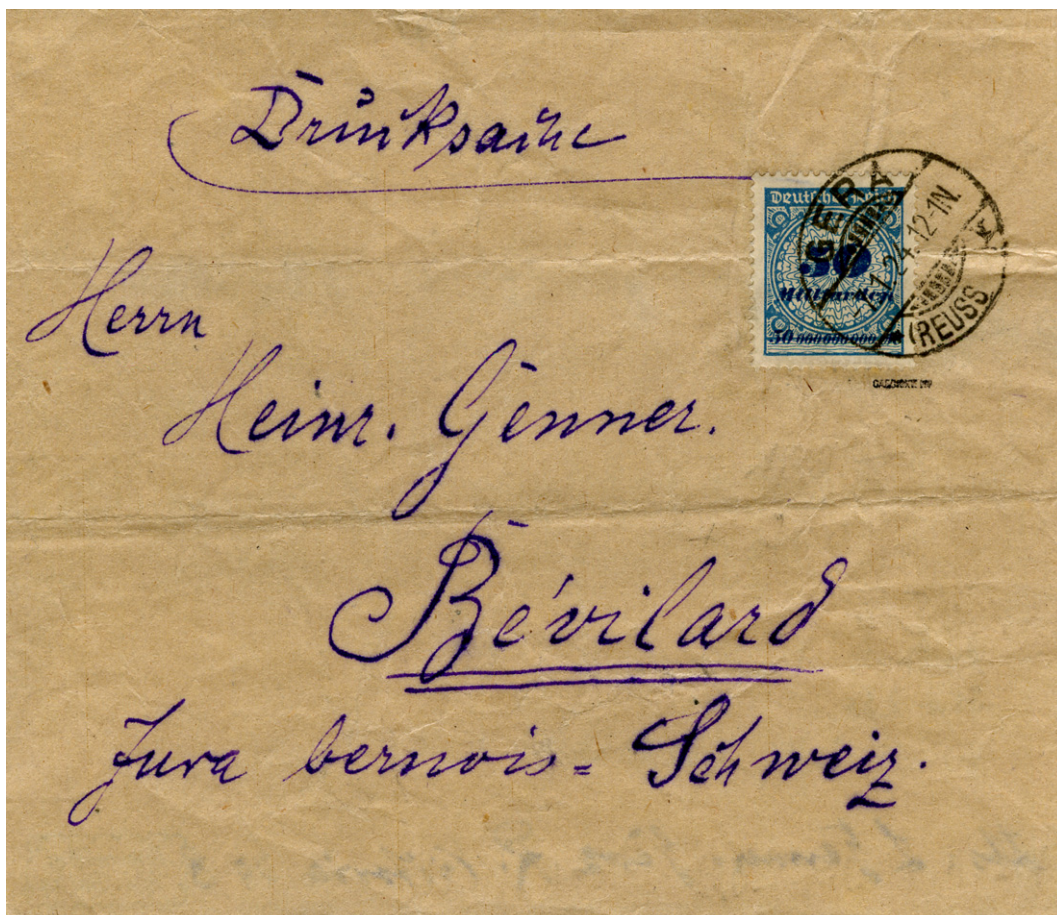 Drucksache
Deutsches Reich
50
Milliarden
50 000 000 000
GERA
1.1.24.12-1N.
(REUSS)
Herrn
Heinr. Genner.
Bévilard
Jura bernois = Schweiz.